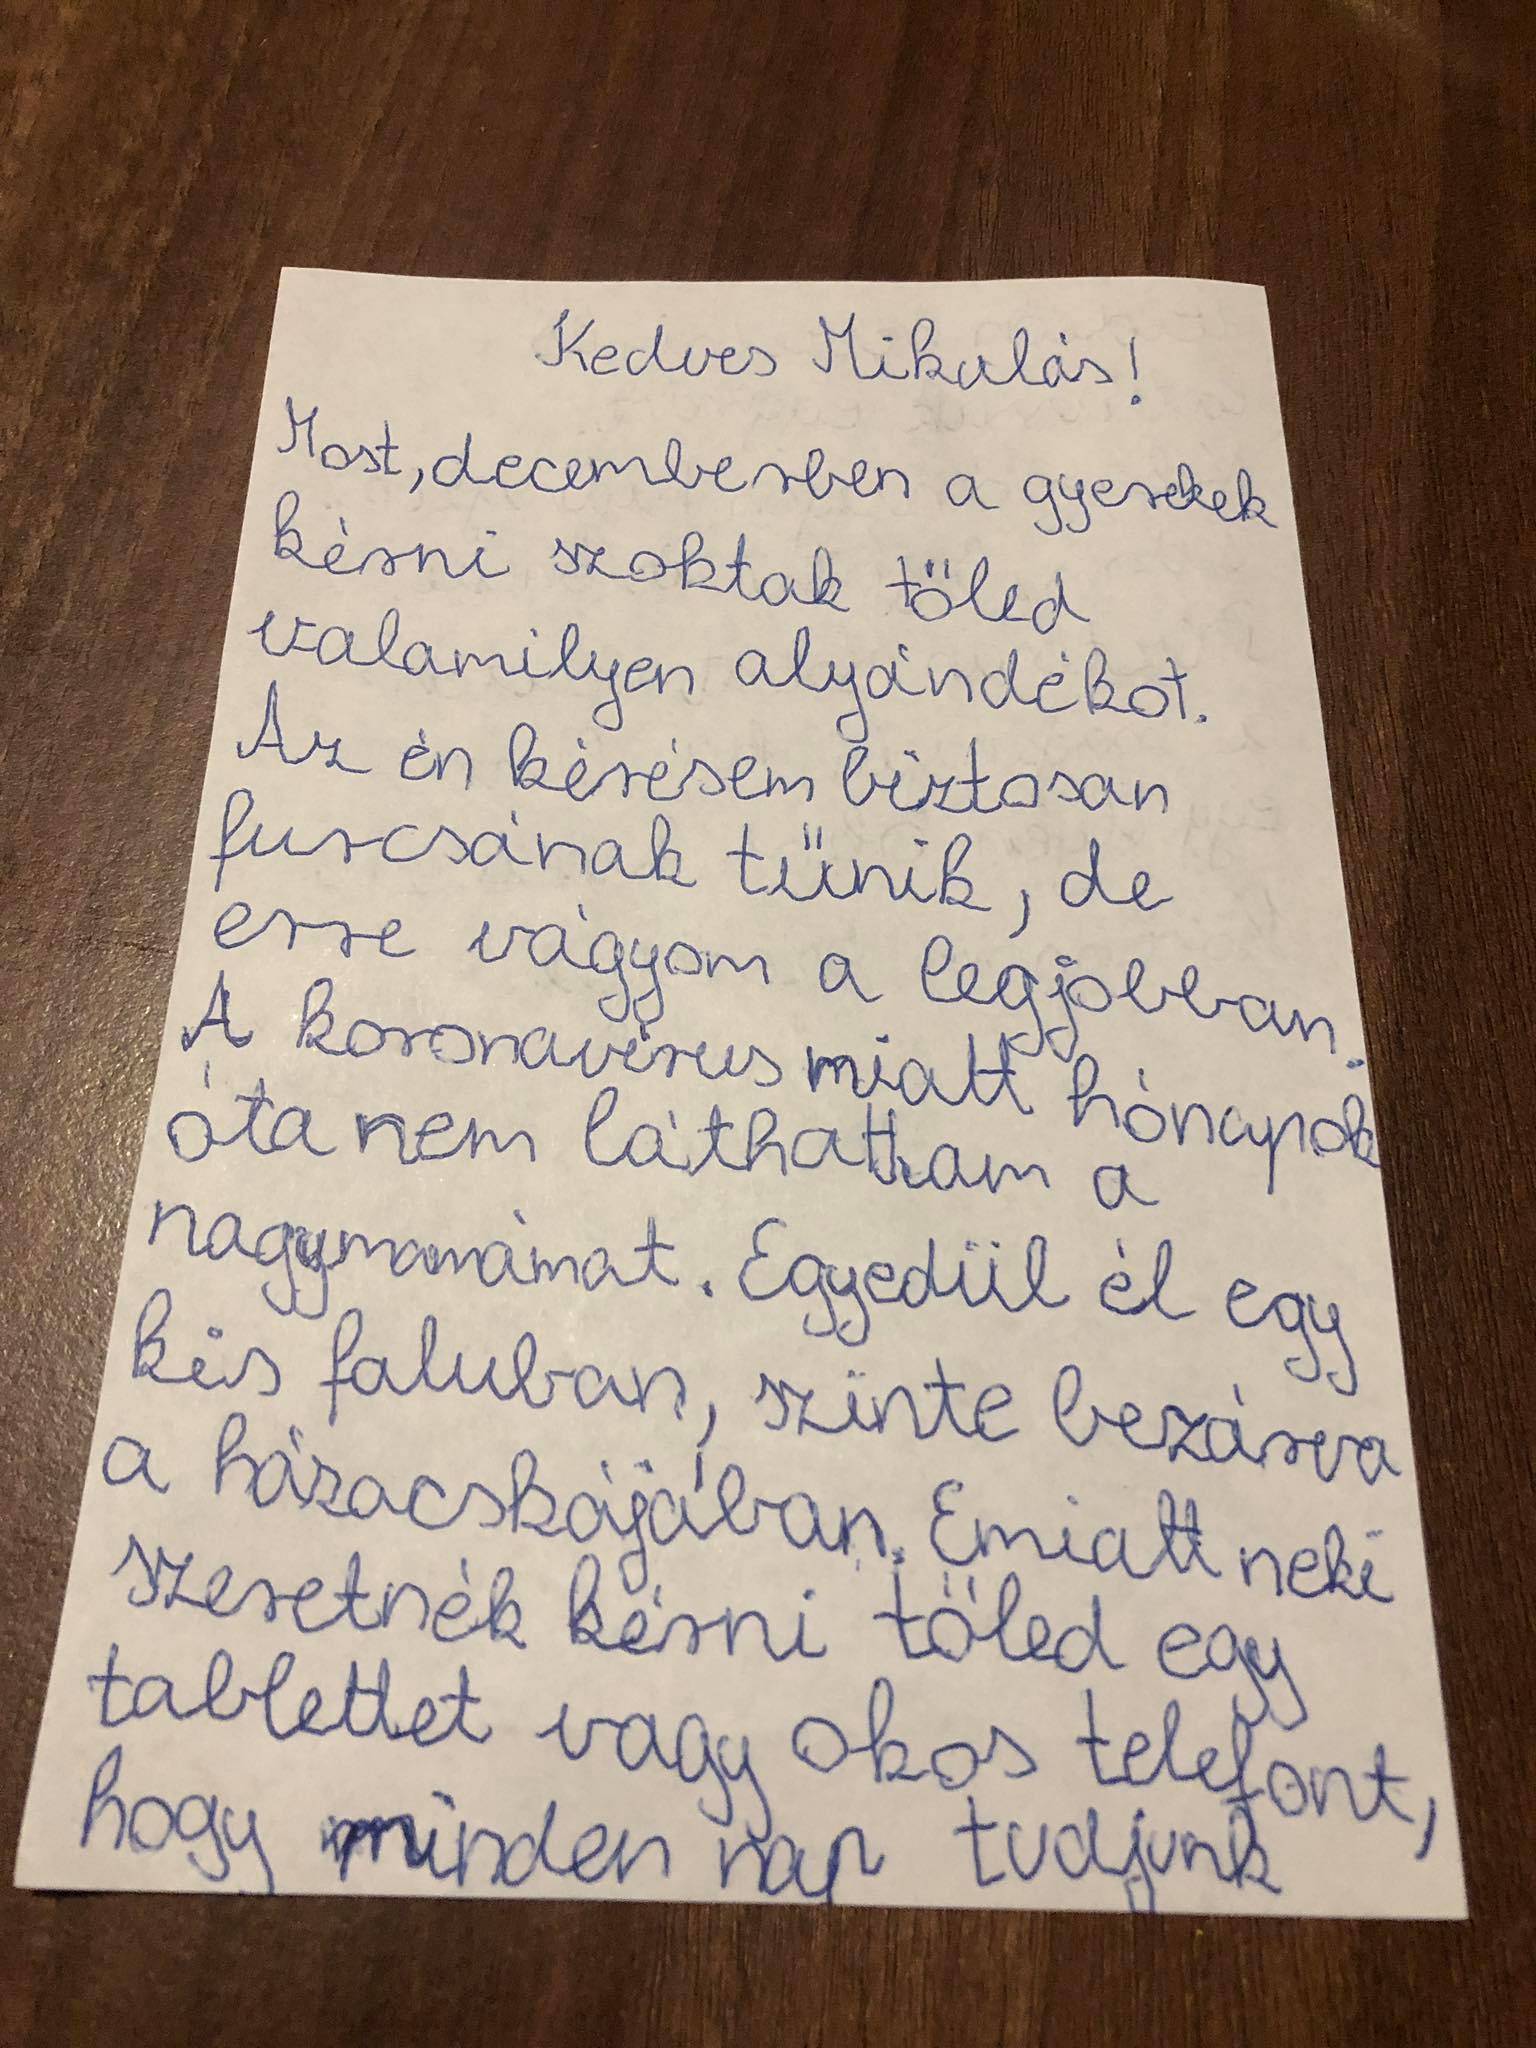 Kedves Mikulás!
Most, decemberben a gyerekek
kérni szoktak tőled
valamilyen alyándékot.
Az én kérésem biztosan
furcsának tűnik, de
erre vágyom a legjobban.
A koronavírus miatt hónapok
óta nem láthattam a
nagymamámat. Egyedül él egy
kis faluban, szinte bezárva
a házacskájában. Emiatt neki
szeretnék kérni tőled egy
tablettet vagy okos telefont,
hogy minden nap tudjunk